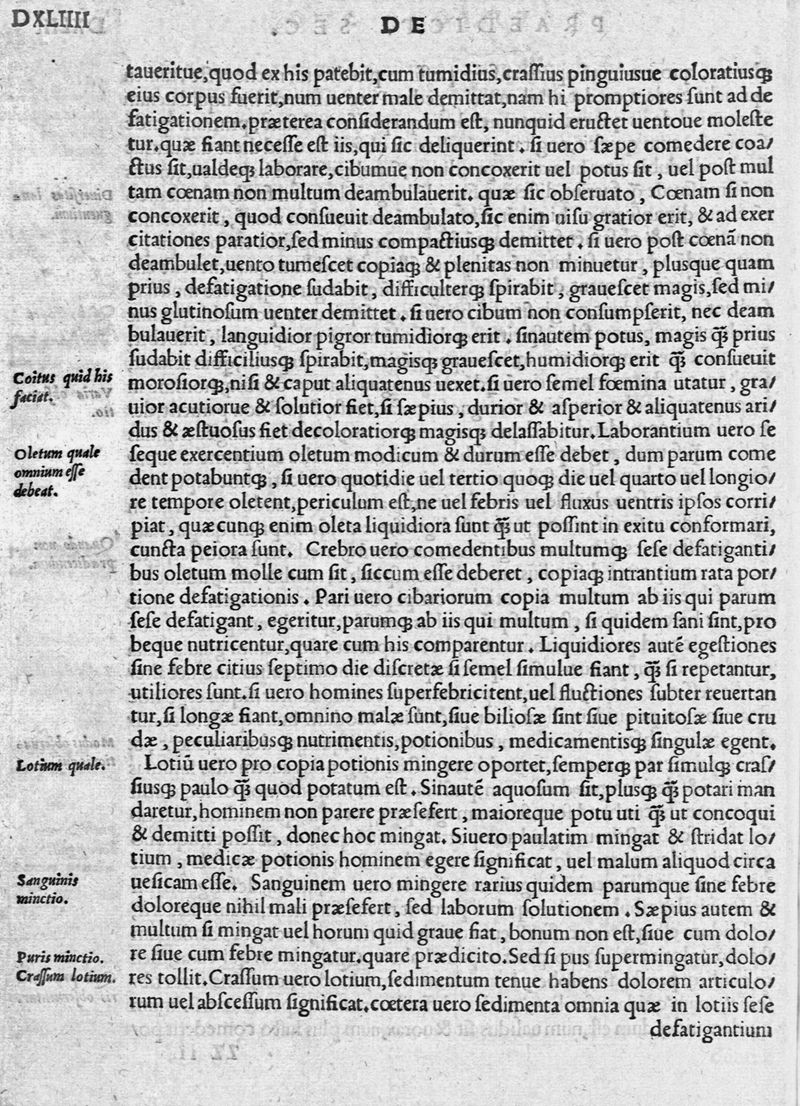 DXLIIII
DE
taueritue,quod ex his patebit,cum tumidius,craſſius pinguiusue coloratiusqȝ
eius corpus fuerit,num uenter male demittat,nam hi promptiores ſunt ad de
fatigationem.præterea conſiderandum eſt, nunquid eructet uentoue moleſte
tur.quæ fiant neceſſe eſt iis,qui ſic deliquerint. ſi uero ſæpe comedere coa/
ctus ſit,ualdeqȝ laborare,cibumue non concoxerit uel potus ſit, uel poſt mul
tam cœnam non multum deambulauerit. quæ ſic obſeruato, Cœnam ſi non
concoxerit, quod conſueuit deambulato,ſic enim uiſu gratior erit, & ad exer
citationes paratior,ſed minus compactiusqȝ demittet. ſi uero poſt cœnã non
deambulet,uento tumeſcet copiaqȝ & plenitas non minuetur, plusque quam
prius, defatigatione ſudabit, difficulterqȝ ſpirabit, graueſcet magis,ſed mi/
nus glutinoſum uenter demittet. ſi uero cibum non conſumpſerit, nec deam
bulauerit, languidior pigror tumidiorqȝ erit. ſinautem potus, magis q̃ȝ prius
ſudabit difficiliusqȝ ſpirabit,magisqȝ graueſcet,humidiorqȝ erit q̃ȝ conſueuit
Coitus quid his
faciat.
moroſiorqȝ,niſi & caput aliquatenus uexet.ſi uero ſemel fœmina utatur, gra/
uior acutiorue & ſolutior fiet,ſi ſæpius, durior & aſperior & aliquatenus ari/
dus & æſtuoſus fiet decoloratiorqȝ magisqȝ delaſſabitur.Laborantium uero ſe
Oletum quale
omnium eſſe
debeat.
ſeque exercentium oletum modicum & durum eſſe debet, dum parum come
dent potabuntqȝ, ſi uero quotidie uel tertio quoqȝ die uel quarto uel longio/
re tempore oletent,periculum eſt,ne uel febris uel fluxus uentris ipſos corri/
piat, quæcunqȝ enim oleta liquidiora ſunt q̃ȝ ut poſſint in exitu conformari,
cuncta peiora ſunt. Crebro uero comedentibus multumqȝ ſeſe defatiganti/
bus oletum molle cum ſit, ſiccum eſſe deberet, copiaqȝ intrantium rata por/
tione defatigationis. Pari uero cibariorum copia multum ab iis qui parum
ſeſe defatigant, egeritur,parumqȝ ab iis qui multum, ſi quidem ſani ſint,pro
beque nutricentur,quare cum his comparentur. Liquidiores auté egeſtiones
ſine febre citius ſeptimo die diſcretæ ſi ſemel ſimulue fiant, q̃ȝ ſi repetantur,
utiliores ſunt.ſi uero homines ſuperfebricitent,uel fluctiones ſubter reuertan
tur,ſi longæ fiant,omnino malæ ſunt,ſiue bilioſæ ſint ſiue pituitoſæ ſiue cru
dæ, peculiaribusqȝ nutrimentis,potionibus, medicamentisqȝ ſingulæ egent.
Lotium quale.
Lotiũ uero pro copia potionis mingere oportet,ſemperqȝ par ſimulqȝ craſ/
ſiusqȝ paulo q̃ȝ quod potatum eſt. Sinauté aquoſum ſit,plusqȝ q̃ȝ potari man
daretur,hominem non parere præſefert, maioreque potu uti q̃ȝ ut concoqui
& demitti poſſit, donec hoc mingat. Siuero paulatim mingat & ſtridat lo/
tium, medicæ potionis hominem egere ſignificat, uel malum aliquod circa
Sanguinis
minctio.
ueſicam eſſe. Sanguinem uero mingere rarius quidem parumque ſine febre
doloreque nihil mali præſefert, ſed laborum ſolutionem. Sæpius autem &
multum ſi mingat uel horum quid graue fiat, bonum non eſt,ſiue cum dolo/
Puris minctio.
re ſiue cum febre mingatur.quare prædicito.Sed ſi pus ſupermingatur,dolo/
Craſſum lotium.
res tollit.Craſſum uero lotium,ſedimentum tenue habens dolorem articulo/
rum uel abſceſſum ſignificat.cœtera uero ſedimenta omnia quæ in lotiis ſeſe
defatigantium